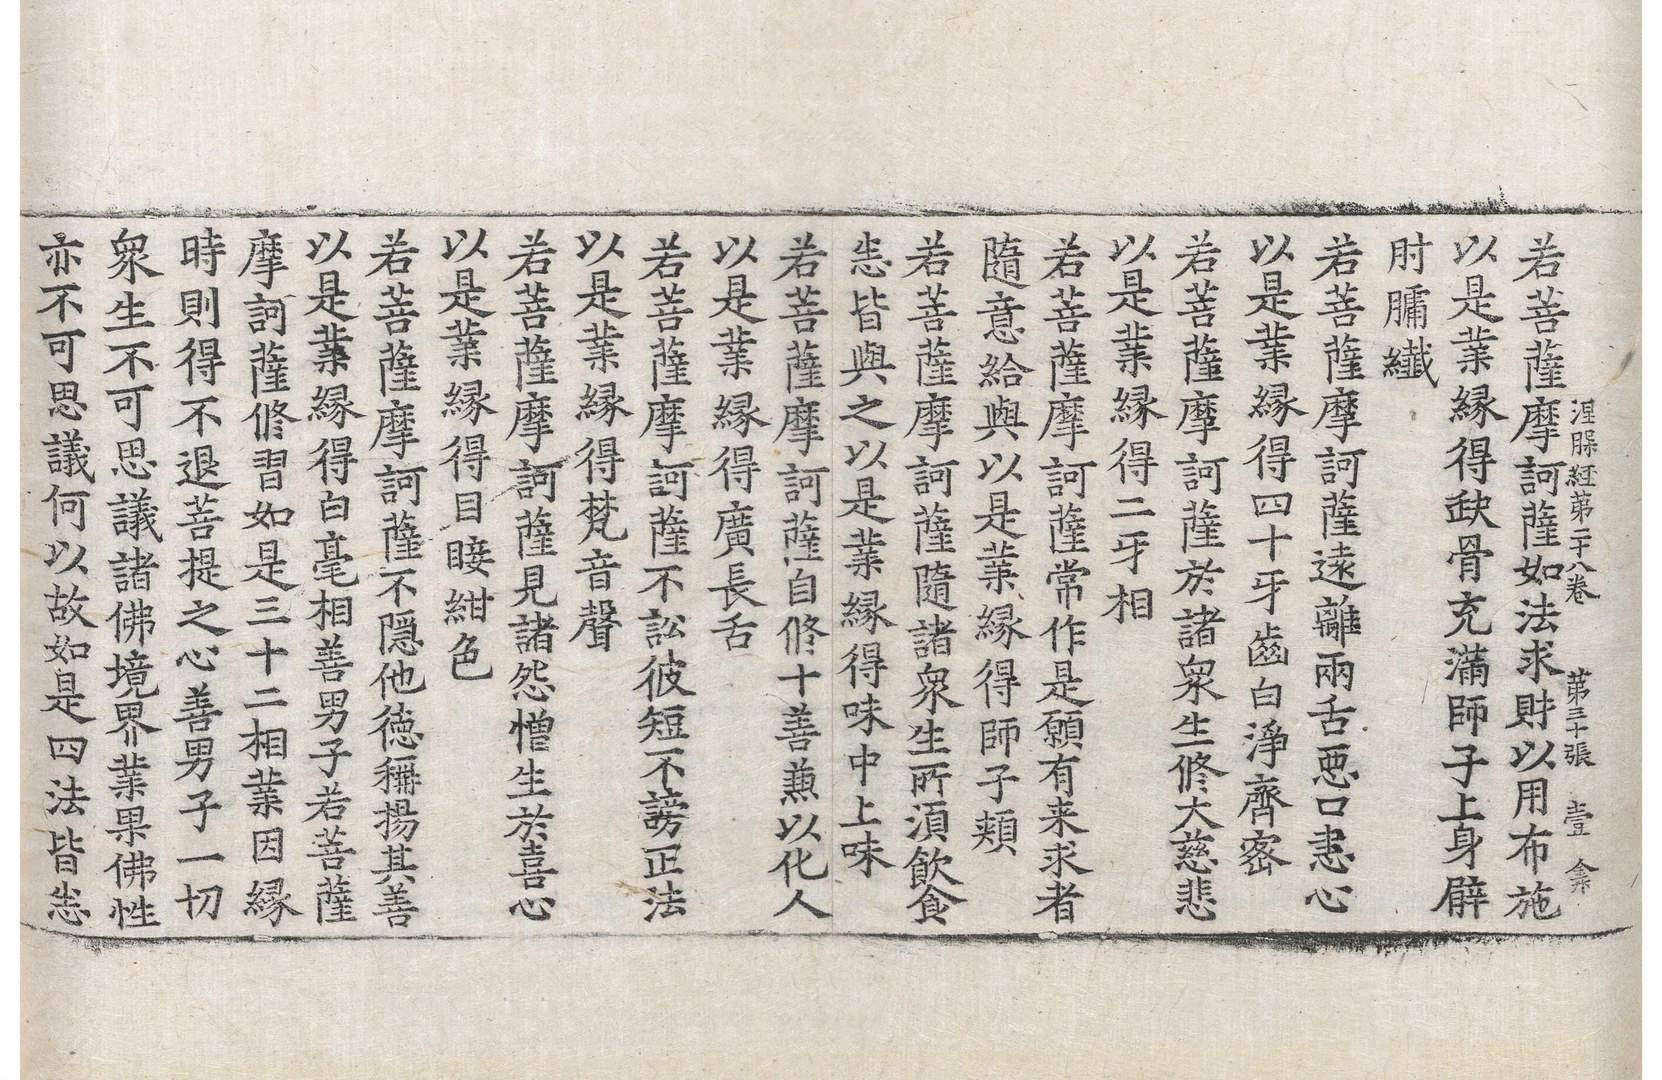 涅槃経第二十八巻　第三十張　壹　龠
若菩薩摩訶薩如法求財以用布施
以是業縁得䏶骨充滿師子上身臂
肘𦟛纖
若菩薩摩訶薩逺離兩舌惡口恚心
以是業縁得四十牙齒白淨齊宻
若菩薩摩訶薩於諸衆生修大慈悲
以是業縁得二牙相
若菩薩摩訶薩常作是願有来求者
隨意給與以是業縁得師子頰
若菩薩摩訶薩隨諸衆生所湏飲食
悉皆與之以是業縁得味中上味
若菩薩摩訶薩自修十善兼以化人
以是業縁得廣長舌
若菩薩摩訶薩不訟彼短不謗正法
以是業縁得梵音聲
若菩薩摩訶薩見諸怨憎生於喜心
以是業縁得目睫紺色
若菩薩摩訶薩不隠他徳稱揚其善
以是業縁得白毫相善男子若菩薩
摩訶薩修習如是三十二相業因縁
時則得不退菩提之心善男子一切
衆生不可思議諸佛境界業果佛性
亦不可思議何以故如是四法皆悉